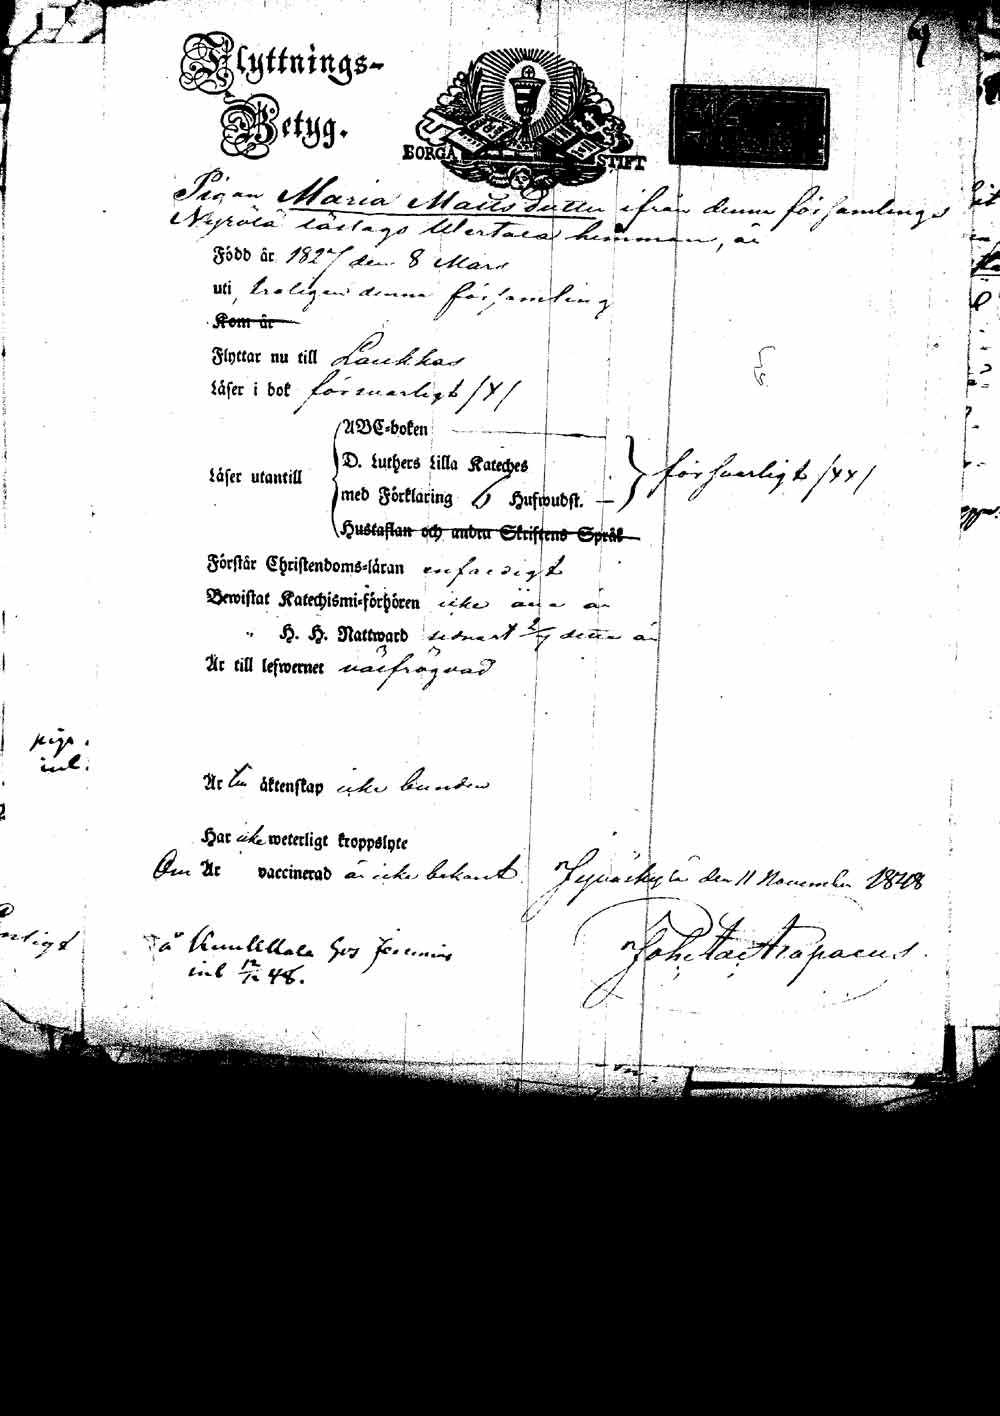 69
Flyttnings-
Betyg.
BORGÅ STIFT
Pigan Maria Matts Dutter ifrån denna församlings
Nyrölä hemman, är
Född år 1827 den 8 Mars
uti, troligen denna församling
Kom år
Flyttar nu till Laukkas
Läser i bok försvarligt /4/
Läser utantill
ABC-boken
D. Luthers Lilla Kateches
med Förklaring 6 Hufwudst. —
Hustaflan och andra Skriftens Språk
försvarligt /44/
Förstår Christendoms-läran enfaldigt
Bewistat Katechismi-förhören icke
" H. H. Nattward senast detta år
Är till lefwernet välfrägdad
Är till äktenskap icke bunden
Har icke weterligt kroppslyte
Om Är vaccinerad är icke bekant. Jyväskylä den 11 November 1848
å hos
inl 12/12 48.
piga.
inl.